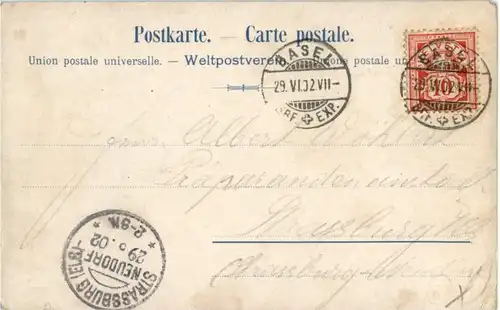 Postkarte. — Carte postale.
Union postale universelle. — Weltpostverein. — Unione postale un
BASEL
29.VI.02.VII-
BRF. EXP.
BASEL
29.VI.02.VII-
10
BRF. EXP.
Albert
Strassburg
Strassburg
STRASSBURG (ELS)-
NEUDORF
29 6. 02
* 8-9N. *